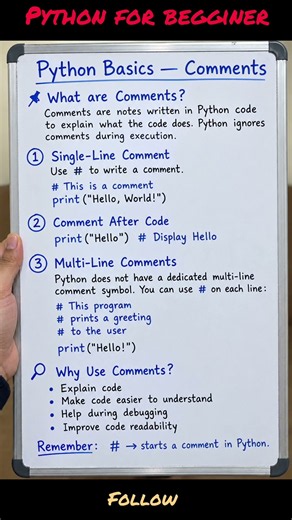 Python for begginer
Python Basics — Comments
📌 What are Comments?
Comments are notes written in Python code
to explain what the code does. Python ignores
comments during execution.
① Single-Line Comment
Use # to write a comment.
# This is a comment
print("Hello, World!")
② Comment After Code
print("Hello") # Display Hello
③ Multi-Line Comments
Python does not have a dedicated multi-line
comment symbol. You can use # on each line:
# This program
# prints a greeting
# to the user
print("Hello!")
🔍 Why Use Comments?
• Explain code
• Make code easier to understand
• Help during debugging
• Improve code readability
Remember: # → starts a comment in Python.
Follow